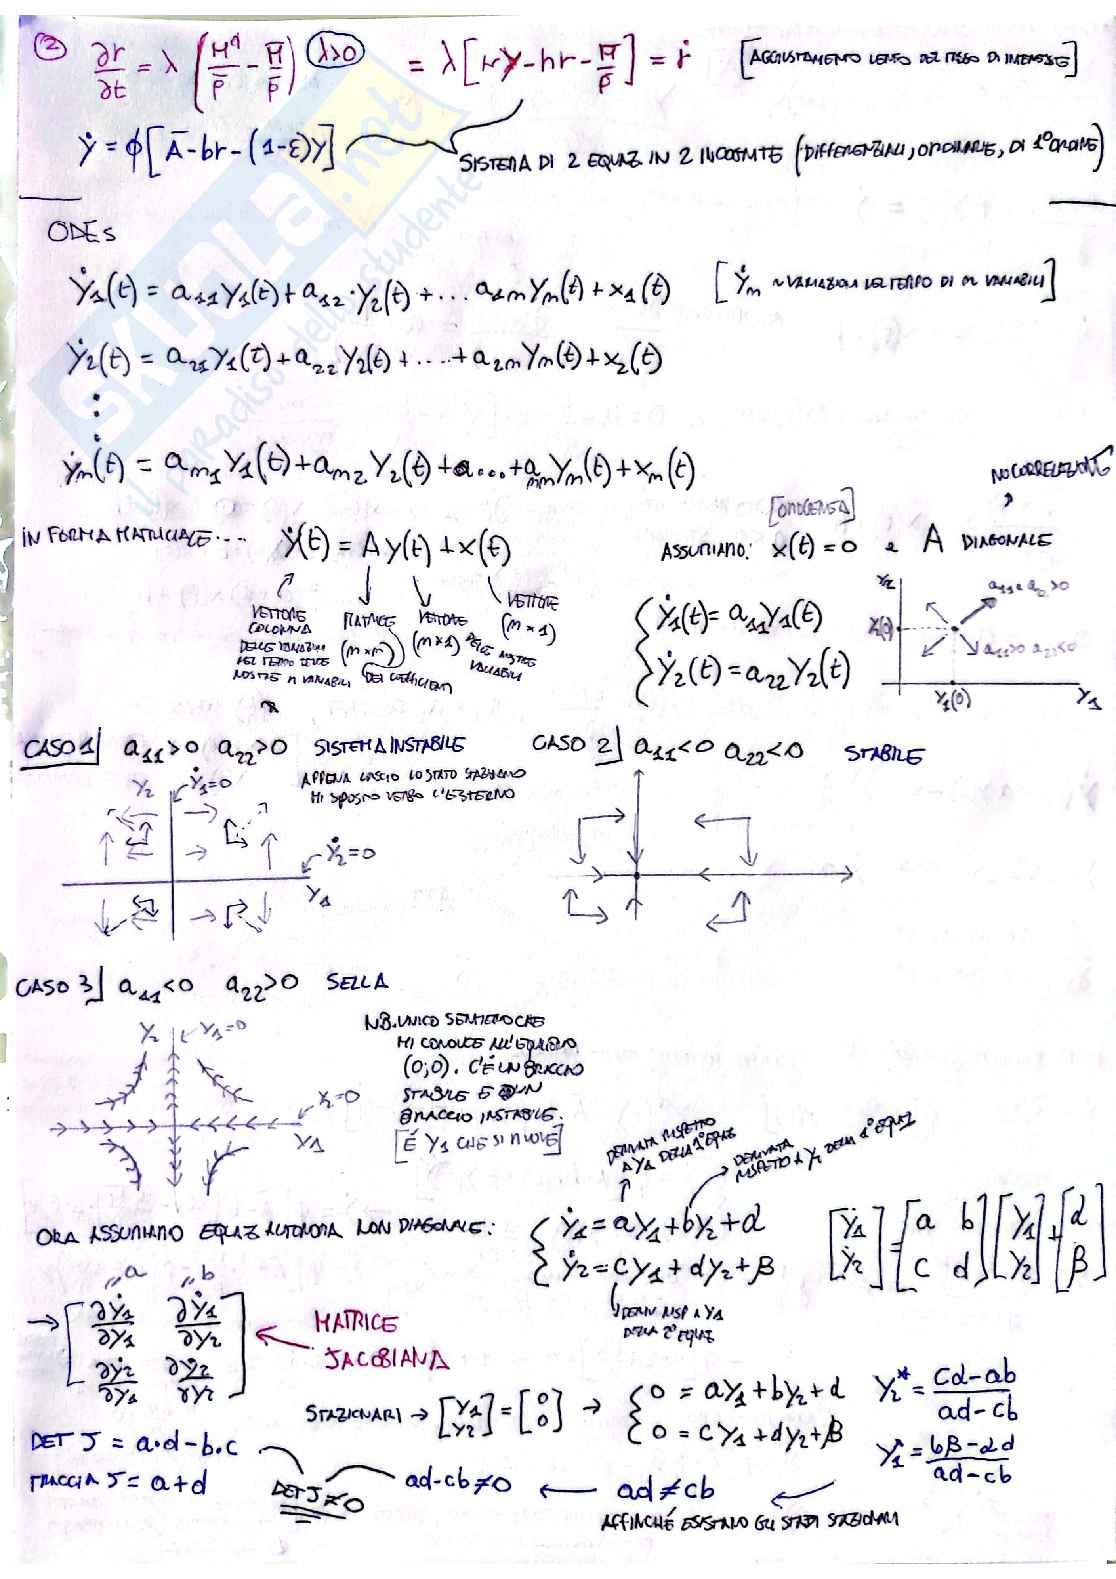 2
∂r/∂t = λ (M^d/P̄ - M̄/P̄) λ>0 = λ[κy - hr - M̄/P̄] = ṙ [AGGIUSTAMENTO LENTO DEL TASSO DI INTERESSE]
ẏ = ϕ[Ā - br - (1-ε)Y]
SISTEMA DI 2 EQUAZ IN 2 INCOGNITE (DIFFERENZIALI, ORDINARIE, DI 1° ORDINE)
ODEs
Ẏ1(t) = a11Y1(t) + a12·Y2(t) + ... a1mYm(t) + x1(t) [Ẏm ~ VARIAZIONI NEL TEMPO DI m VARIABILI]
Ẏ2(t) = a21Y1(t) + a22Y2(t) + .... + a2mYm(t) + x2(t)
⋮
Ẏm(t) = am1Y1(t) + am2Y2(t) + a... + ammYm(t) + xm(t)
NO CORRELAZIONE
[OMOGENEA]
IN FORMA MATRICIALE.... Ẏ(t) = A y(t) + x(t)
ASSUMIAMO: x(t) = 0 e A DIAGONALE
VETTORE COLONNA
DELLE VARIAZIONI
NEL TEMPO DELLE
NOSTRE m VARIABILI
MATRICE
(m × m)
DEI COEFFICIENTI
VETTORE
(m × 1) DELLE NOSTRE
VARIABILI
VETTORE
(m × 1)
Ẏ1(t) = a11Y1(t)
Ẏ2(t) = a22Y2(t)
Y2
a11 e a22 > 0
a11>0 a22<0
Y1(0)
Y1
CASO 1 a11>0 a22>0 SISTEMA INSTABILE
APPENA LASCIO LO STATO STAZIONARIO
MI SPOSTO VERSO L'ESTERNO
Y2
Ẏ1=0
Ẏ2=0
Y1
CASO 2 a11<0 a22<0 STABILE
CASO 3 a11<0 a22>0 SELLA
Y2
Ẏ1=0
Ẏ2=0
Y1
NB. UNICO SENTIERO CHE
MI CONDUCE ALL'EQUILIBRIO
(0;0). C'È UN BRACCIO
STABILE E UN
BRACCIO INSTABILE.
[È Y1 CHE SI MUOVE]
DERIVATA RISPETTO
A Y1 DELLA 1° EQUAZ
DERIVATA
RISPETTO A Y2 DELLA 1° EQUAZ
ORA ASSUMIAMO EQUAZ AUTONOMA NON DIAGONALE:
Ẏ1 = aY1 + bY2 + α
Ẏ2 = cY1 + dY2 + β
[Ẏ1 Ẏ2] = [a b c d] [Y1 Y2] + [α β]
DERIV RISP A Y1
DELLA 2° EQUAZ
" a " b
→ [∂Ẏ1/∂Y1 ∂Ẏ1/∂Y2
∂Ẏ2/∂Y1 ∂Ẏ2/∂Y2]
MATRICE
JACOBIANA
STAZIONARI → [Y1 Y2] = [0 0] →
0 = aY1 + bY2 + α
0 = cY1 + dY2 + β
Y2* = cα-aβ / ad-cb
Y1* = bβ-αd / ad-cb
DET J = a·d - b·c
TRACCIA J = a+d
DET J ≠ 0
ad-cb ≠ 0 ← ad ≠ cb
AFFINCHÉ ESISTANO GLI STATI STAZIONARI
SKUOLA.net
il paradiso dello studente